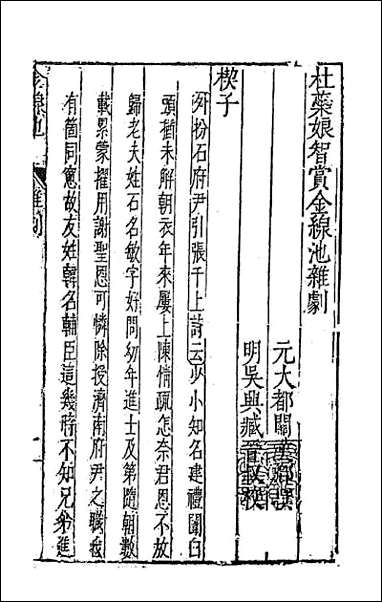 杜蘂娘智賞金線池雜劇
元大都關漢卿撰
明吳興臧晉叔校
楔子
外扮石府尹引張千上詩云少小知名建禮闈白
頭猶未解朝衣年來屢上陳情疏怎奈君恩不放
歸老夫姓石名敏字好問幼年進士及第隨朝數
載累蒙擢用謝聖恩可憐除授濟南府尹之職我
有箇同窓故友姓韓名輔臣這幾時不知兄弟進
金線池
雜劇
一